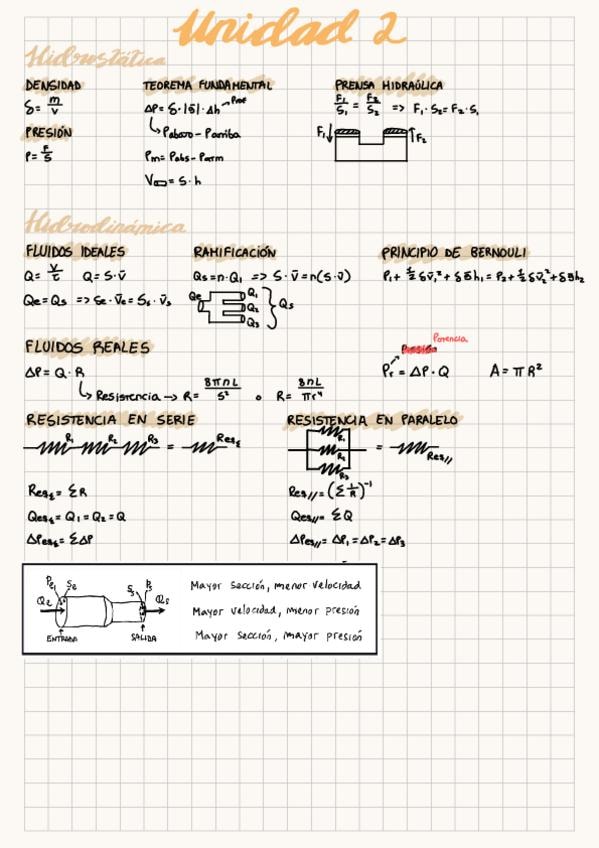 Unidad 2
Hidrostática
DENSIDAD
δ = m/v
PRESIÓN
P = F/S
TEOREMA FUNDAMENTAL
ΔP = δ · |g| · Δh → Prof
↳ Pabajo - Parriba
Pm = Pabs - Patm
V = S · h
PRENSA HIDRAÚLICA
F₁/S₁ = F₂/S₂ => F₁ · S₂ = F₂ · S₁
F₁ F₂
Hidrodinámica
FLUIDOS IDEALES
Q = V/t Q = S · v̄
Qe = Qs => Se · v̄e = Ss · v̄s
RAMIFICACIÓN
Qs = n · Q₁ => S · v̄ = n(S · v̄)
Qe Q₁ Q₂ Q₃ } Qs
PRINCIPIO DE BERNOULI
P₁ + ½ δ v̄₁² + δ g h₁ = P₂ + ½ δ v̄₂² + δ g h₂
FLUIDOS REALES
ΔP = Q · R
↳ Resistencia → R = 8πηL/S² o R = 8ηL/πr⁴
Potencia
Pt = ΔP · Q A = πR²
RESISTENCIA EN SERIE
R₁ R₂ R₃ = Res
Res = ΣR
Qes = Q₁ = Q₂ = Q
ΔPes = ΣΔP
RESISTENCIA EN PARALELO
R₁
R₂
R₃
= Res//
Res// = (Σ 1/R)⁻¹
Qes// = ΣQ
ΔPes// = ΔP₁ = ΔP₂ = ΔP₃
Pe Se Ss Ps
Qe Qs
ENTRADA SALIDA
Mayor sección, menor velocidad
Mayor velocidad, menor presión
Mayor sección, mayor presión